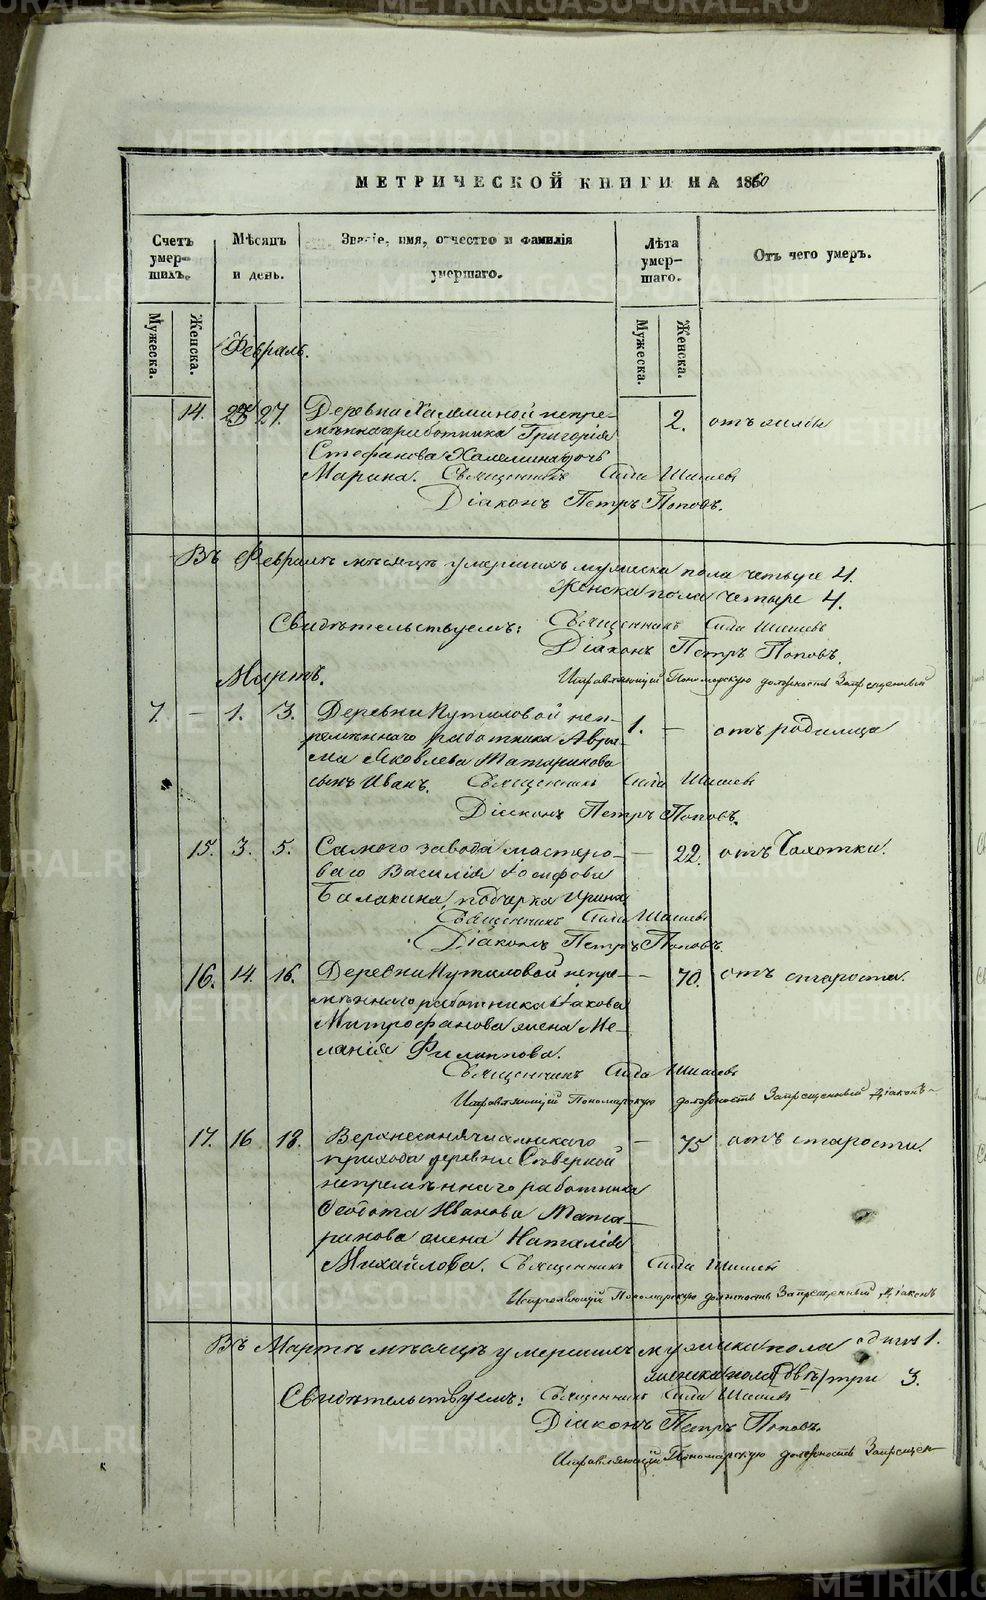 METRIKI.GASO-URAL.RU
МЕТРИЧЕСКОЙ КНИГИ НА 1860
Счетъ умер-шихъ.
Мѣсяцъ и день.
Званіе, имя, отчество и фамилія умершаго.
Лѣта умер-шаго.
Отъ чего умеръ.
Мужеска.
Женска.
Мужеска.
Женска.
Февраль.
14. 27. Деревни Халеминой непре- 2.
мѣннаго работника Григорія
Стефанова Халемина дочь
Марина. Священникъ Сила
Діаконъ Петръ Поповъ.
Въ Февралѣ мѣсяцѣ умершихъ мужеска пола четыре 4.
Женска пола четыре 4.
Свидѣтельствуемъ: Священникъ Сила
Діаконъ Петръ Поповъ.
Мартъ. Исправляющій Пономарскую должность Запрещенный
7. — 1. 3. Деревни Путиловой неп- 1. — отъ родимца
ремѣннаго работника Авра-
ма Яковлева Татаринова
сынъ Иванъ. Священникъ Сила
Діаконъ Петръ Поповъ.
15. 3. 5. Самого завода мастеро- — 22. отъ Чахотки.
ваго Василія Іосифова
Балакина, Ирина
Священникъ Сила
Діаконъ Петръ Поповъ.
16. 14. 16. Деревни Путиловой непре- — 70. отъ старости.
мѣннаго работника Іакова
Митрофанова жена Ме-
ланія Филиппова.
Священникъ Сила
Исправляющій Пономарскую должность Запрещенный Діаконъ
17. 16 18. — 75 отъ старости.
прихода деревни Северной
непремѣннаго работника
Ѳедота Иванова Тата-
ринова жена Наталія
Михайлова. Священникъ Сила
Исправляющій Пономарскую должность Запрещенный Діаконъ
Въ Мартѣ мѣсяцѣ умершихъ мужеска пола одинъ 1.
женска пола [двѣ] три 3.
Свидѣтельствуемъ: Священникъ Сила
Діаконъ Петръ Поповъ.
Исправляющій Пономарскую должность Запрещен-